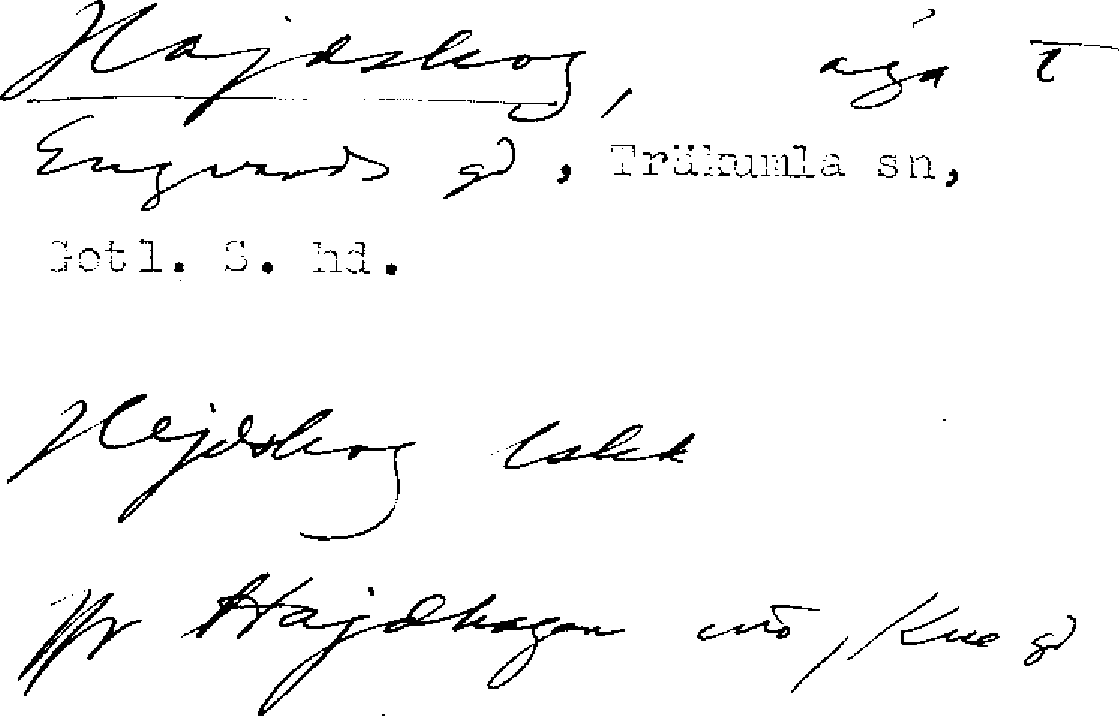 Hajdskog, äga t
Engvards gd, Träkumla sn,
Gotl. S. hd.
Hejdskog
Jfr Hajdhagen nö, Kue gd